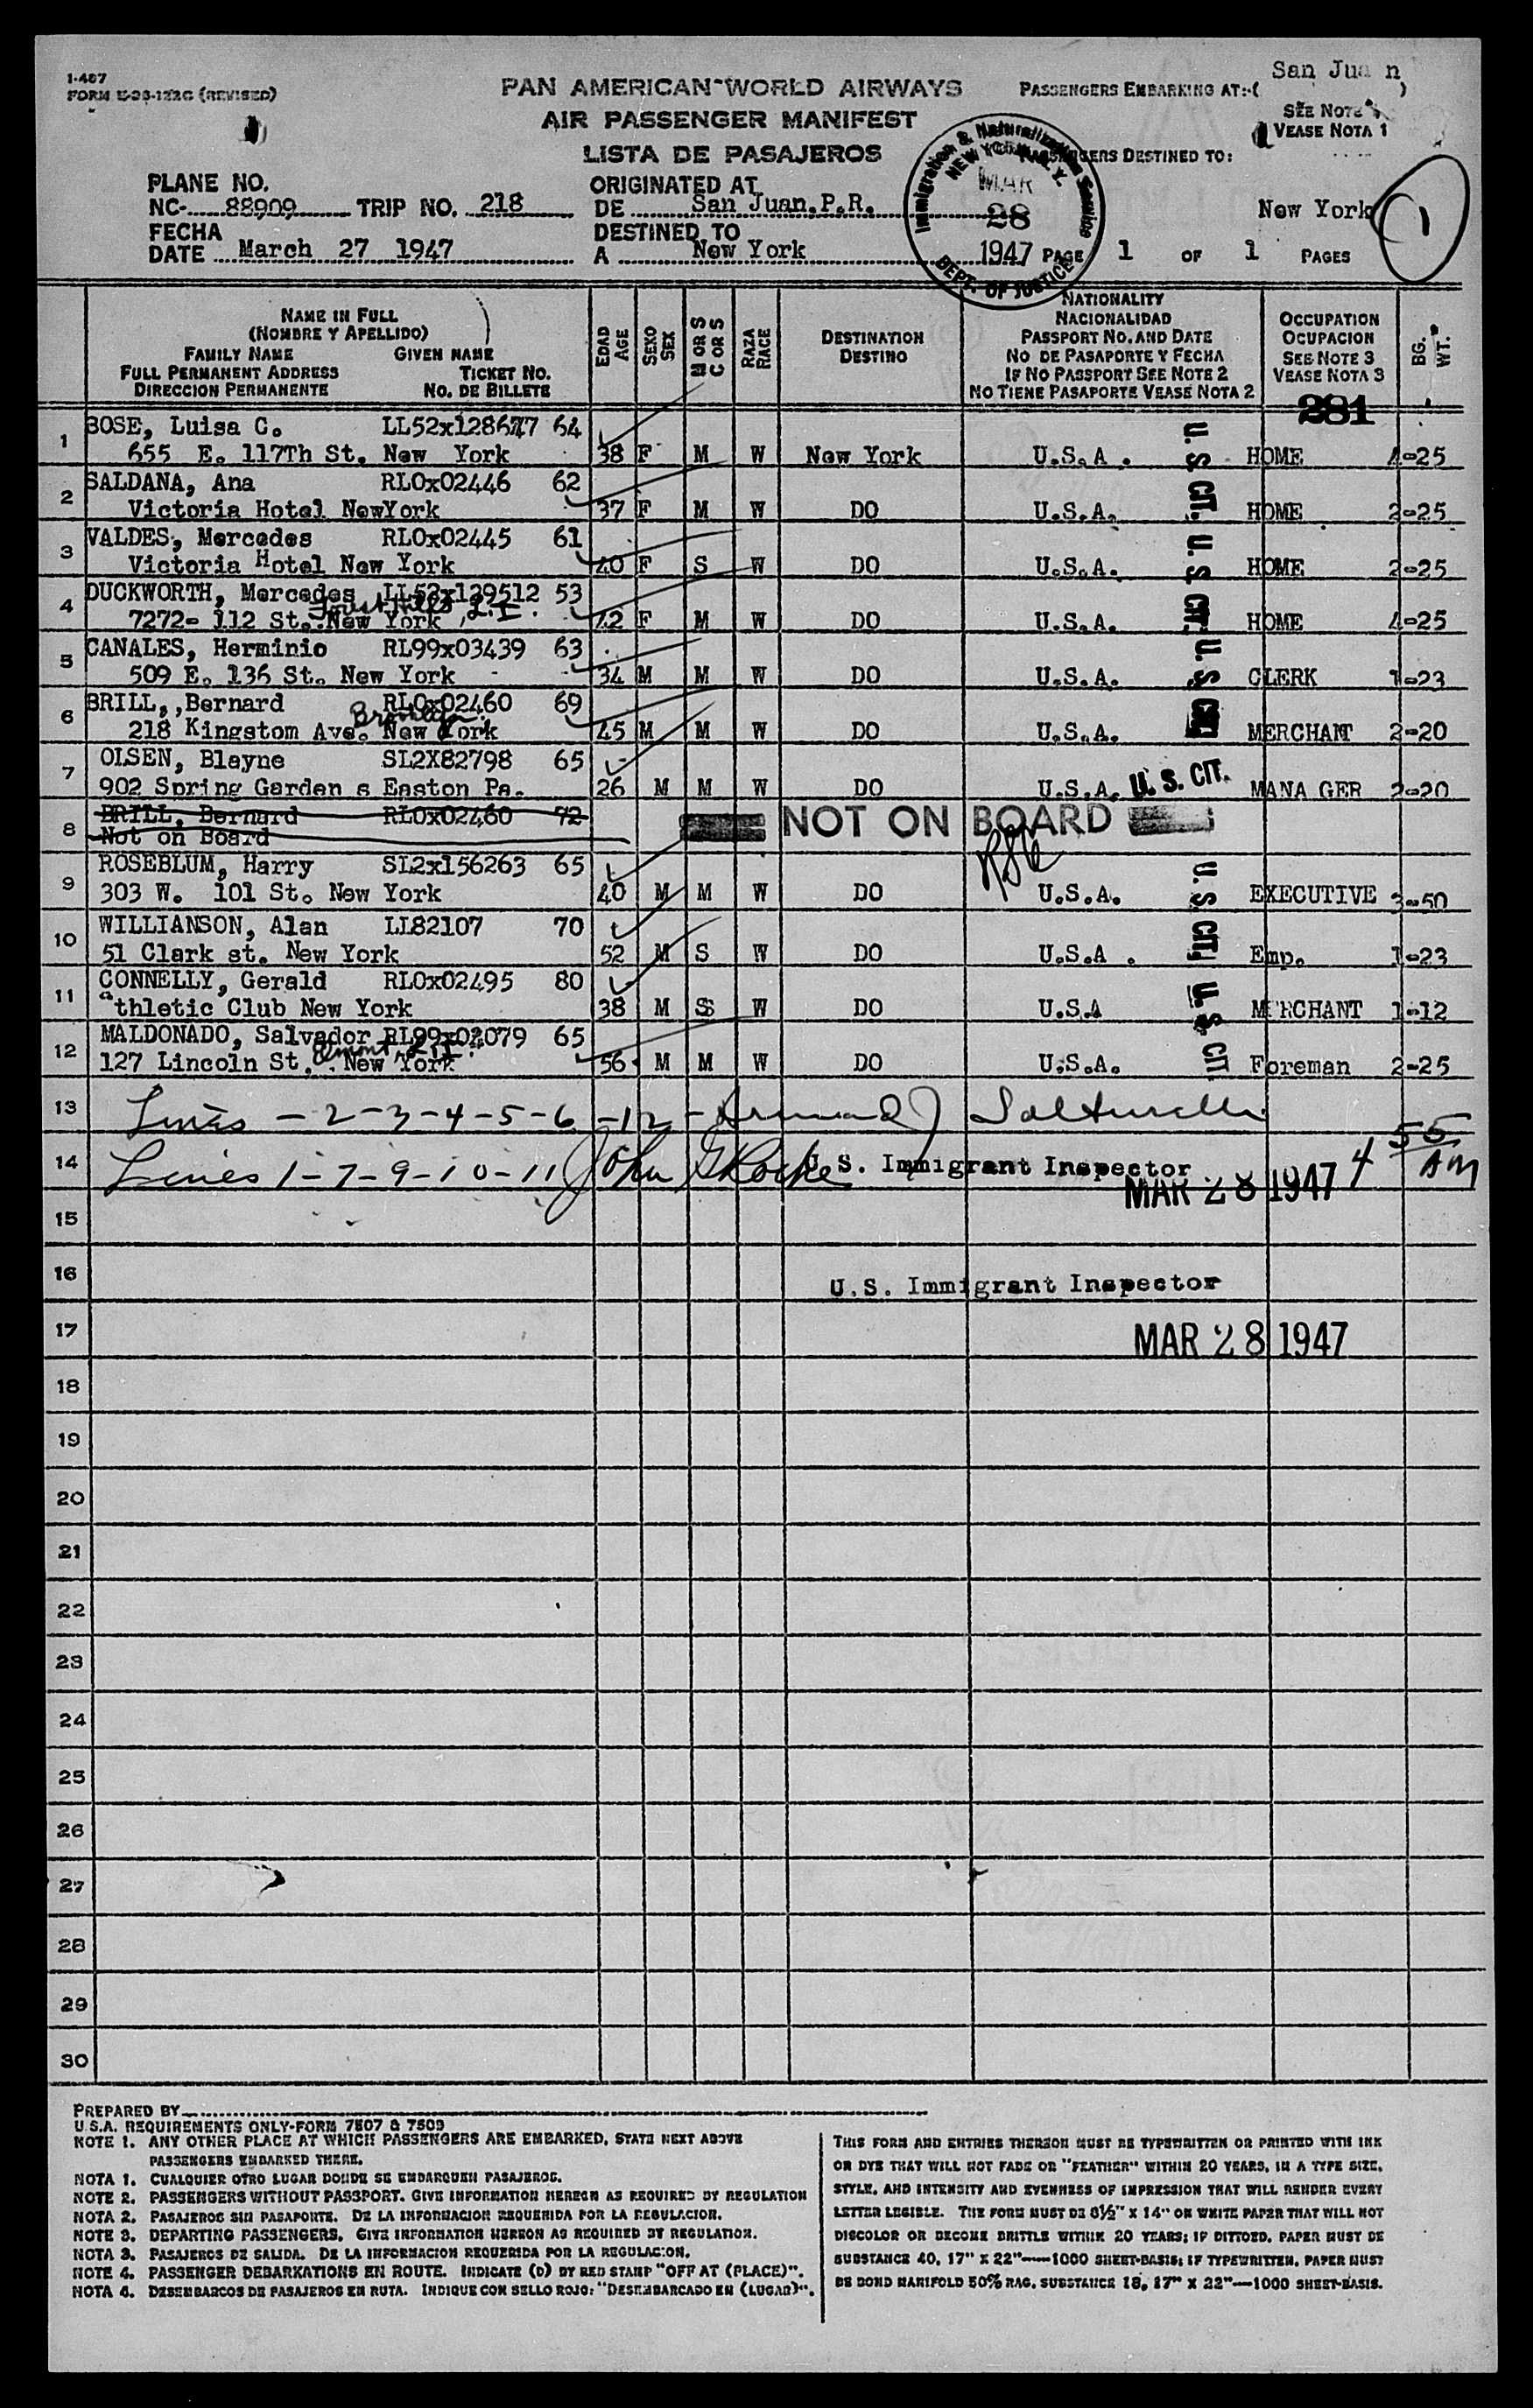 I-467
FORM E-28-122C (REVISED)
PAN AMERICAN WORLD AIRWAYS
AIR PASSENGER MANIFEST
LISTA DE PASAJEROS
PASSENGERS EMBARKING AT:-( San Juan )
SEE NOTE 1
VEASE NOTA 1
PASSENGERS DESTINED TO:
New York
1
PLANE NO.
NC- 88909 TRIP NO. 218
FECHA
DATE March 27 1947
ORIGINATED AT
DE San Juan, P.R.
DESTINED TO
A New York
Immigration & Naturalization Service
NEW YORK, N.Y.
MAR
28
1947
DEPT. OF JUSTICE
PAGE 1 OF 1 PAGES
NAME IN FULL
(NOMBRE Y APELLIDO)
FAMILY NAME GIVEN NAME
FULL PERMANENT ADDRESS TICKET NO.
DIRECCION PERMANENTE NO. DE BILLETE
EDAD AGE
SEXO SEX
M OR S C OR S
RAZA RACE
DESTINATION
DESTINO
NATIONALITY
NACIONALIDAD
PASSPORT NO. AND DATE
NO DE PASAPORTE Y FECHA
IF NO PASSPORT SEE NOTE 2
NO TIENE PASAPORTE VEASE NOTA 2
OCCUPATION
OCUPACION
SEE NOTE 3
VEASE NOTA 3
BG. WT.
281
1 BOSE, Luisa C. 64
655 E. 117Th St. New York 38 F M W New York U.S.A. U.S CIT. HOME 4-25
2 SALDANA, Ana RLOx02446 62
Victoria Hotel NewYork 37 F M W DO U.S.A. HOME 2-25
3 VALDES, Mercedes RLOx02445 61
Victoria Hotel New York 40 F S W DO U.S.A. U.S CIT. HOME 2-25
4 DUCKWORTH, Mercedes LL52x129512 53
Forest Hills L.I.
7272- 112 St. New York 42 F M W DO U.S.A. HOME 4-25
5 CANALES, Herminio RL99x03439 63
509 E. 136 St. New York 34 M M W DO U.S.A. U.S CIT CLERK 1-23
6 BRILL, ,Bernard RLOx02460 69
Brooklyn
218 Kingstom Ave. New York 45 M M W DO U.S.A. MERCHANT 2-20
7 OLSEN, Blayne SL2X82798 65
902 Spring Garden s Easton Pa. 26 M M W DO U.S.A. U.S. CIT. MANA GER 2-20
8 BRILL, Bernard RLOx02460 72
Not on Board
NOT ON BOARD
9 ROSEBLUM, Harry SL2x156263 65
303 W. 101 St. New York 40 M M W DO U.S.A. U.S. CIT. EXECUTIVE 3-50
10 WILLIANSON, Alan LL82107 70
51 Clark st. New York 52 M S W DO U.S.A . Emp. 1-23
11 CONNELLY, Gerald RLOx02495 80
athletic Club New York 38 M S W DO U.S.A U.S. CIT. MERCHANT 1-12
12 MALDONADO, Salvador RL99x02079 65
Elmont, L.I.
127 Lincoln St. New York 56 M M W DO U.S.A. Foreman 2-25
13 Lines - 2-3-4-5-6-12 -
14 Lines 1-7-9-10-11 John G Roche U.S. Immigrant Inspector 4 55 AM
MAR 28 1947
15
16 U.S. Immigrant Inspector
17 MAR 28 1947
18
19
20
21
22
23
24
25
26
27
28
29
30
PREPARED BY
U.S.A. REQUIREMENTS ONLY-FORM 7507 & 7509
NOTE 1. ANY OTHER PLACE AT WHICH PASSENGERS ARE EMBARKED, STATE NEXT ABOVE
PASSENGERS EMBARKED THERE.
NOTA 1. CUALQUIER OTRO LUGAR DONDE SE EMBARQUEN PASAJEROS.
NOTE 2. PASSENGERS WITHOUT PASSPORT. GIVE INFORMATION HEREON AS REQUIRED BY REGULATION
NOTA 2. PASAJEROS SIN PASAPORTE. DE LA INFORMACION REQUERIDA POR LA REGULACION.
NOTE 3. DEPARTING PASSENGERS. GIVE INFORMATION HEREON AS REQUIRED BY REGULATION.
NOTA 3. PASAJEROS DE SALIDA. DE LA INFORMACION REQUERIDA POR LA REGULACION.
NOTE 4. PASSENGER DEBARKATIONS EN ROUTE. INDICATE (D) BY RED STAMP "OFF AT (PLACE)".
NOTA 4. DESEMBARCOS DE PASAJEROS EN RUTA. INDIQUE CON SELLO ROJO: "DESEMBARCADO EN (LUGAR)".
THIS FORM AND ENTRIES THEREON MUST BE TYPEWRITTEN OR PRINTED WITH INK
OR DYE THAT WILL NOT FADE OR "FEATHER" WITHIN 20 YEARS, IN A TYPE SIZE,
STYLE, AND INTENSITY AND EVENNESS OF IMPRESSION THAT WILL RENDER EVERY
LETTER LEGIBLE. THE FORM MUST BE 8½" X 14" ON WHITE PAPER THAT WILL NOT
DISCOLOR OR BECOME BRITTLE WITHIN 20 YEARS; IF DITTOED, PAPER MUST BE
SUBSTANCE 40, 17" X 22"—1000 SHEET-BASIS; IF TYPEWRITTEN, PAPER MUST
BE BOND MANIFOLD 50% RAG, SUBSTANCE 18, 17" X 22"—1000 SHEET-BASIS.